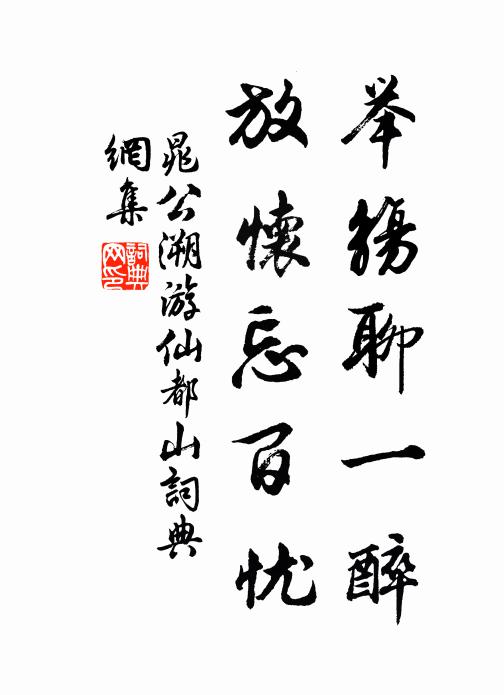 举觞聊一醉
放怀忘百忧
晁公溯游仙都山詞典
網集
詞典网印